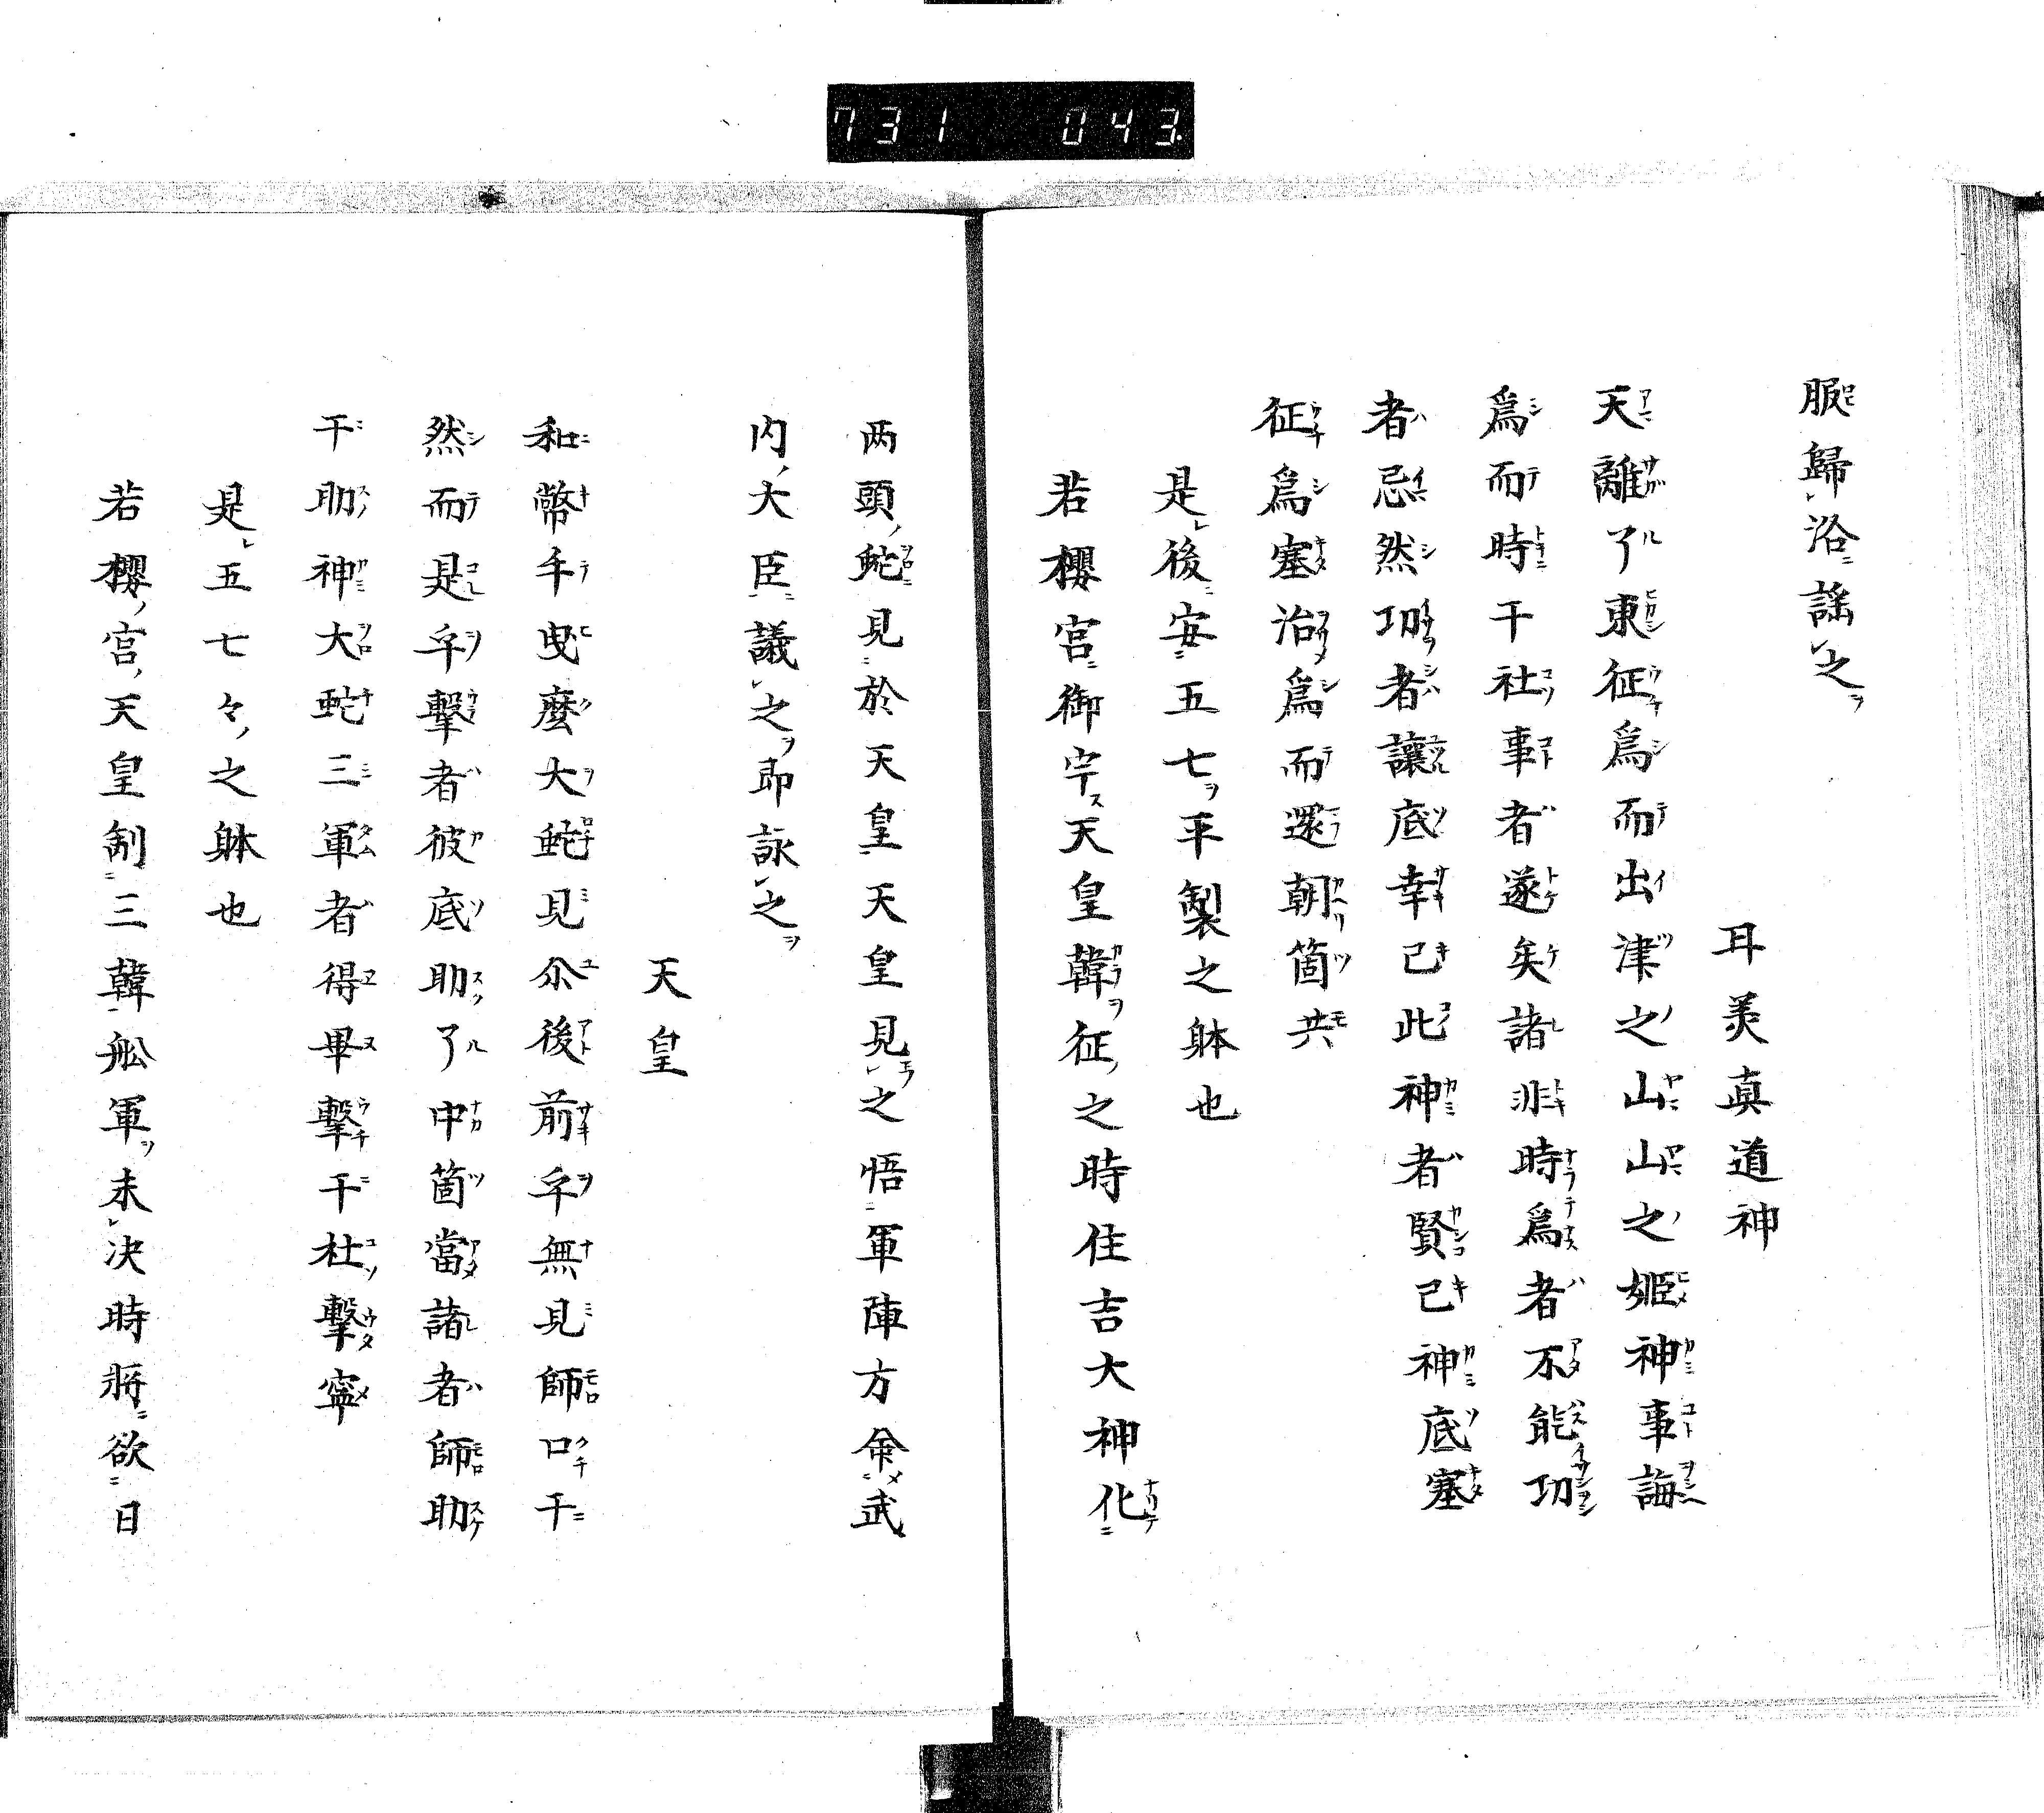 731 043.
服歸洛謡之
耳羙真道神
天離了東征爲而出津之山山之姫神事誨
爲而時干社事者遂矣諸非時爲者不能功
者忌然功者讓底幸己此神者賢己神底塞
征爲塞治爲而還朝箇共
是後安五七平製之躰也
若櫻宮御宇天皇韓征之時住吉大神化
两頭蛇見於天皇天皇見之悟軍陣方命武
内大臣議之即詠之
天皇
和幣手曳麼大蛇見尒後前乎無見師口干
然而是乎擊者彼底助了中箇當諸者師助
干助神大蛇三軍者得畢擊干社擊寧
是五七々之躰也
若櫻宮天皇制三韓舩軍未决時將欲日